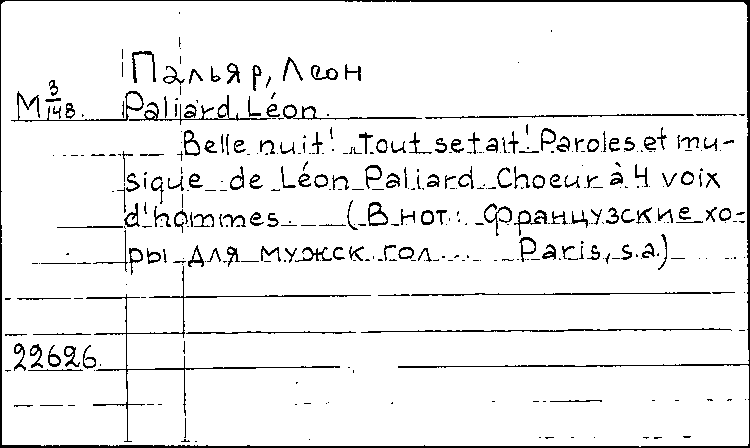 Пальяр, Леон
М 3/148. Paliard, Léon.
Belle nuit! „Tout se tait! Paroles et mu-
sique de Léon Paliard. Choeur à 4 voix
d'hommes. (В нот.: Французские хо-
ры для мужск. гол... Paris, s.a.)
22626.